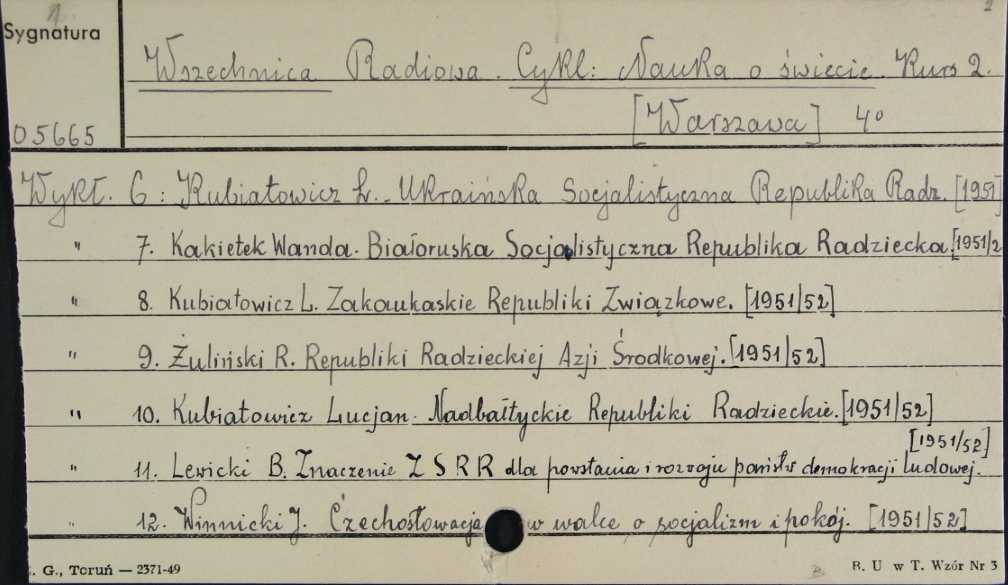 1. 2
Sygnatura
Wszechnica Radiowa. Cykl: Nauka o świecie. Kurs 2.
05665 [Warszawa] 4°
Wykł. 6: Kubiatowicz L. Ukraińska Socjalistyczna Republika Radz. [1951]
" 7. Kąkietek Wanda. Białoruska Socjalistyczna Republika Radziecka. [1951/2
" 8. Kubiatowicz L. Zakaukaskie Republiki Związkowe. [1951/52]
" 9. Żuliński R. Republiki Radzieckiej Azji Środkowej. [1951/52]
" 10. Kubiatowicz Lucjan. Nadbałtyckie Republiki Radzieckie. [1951/52]
[1951/52]
" 11. Lewicki B. Znaczenie Z S R R dla powstania i rozwoju państw demokracji ludowej.
" 12. Winnicki J. Czechosłowacja w walce o socjalizm i pokój. [1951/52]
. G., Toruń — 2371-49 B. U w T. Wzór Nr 3